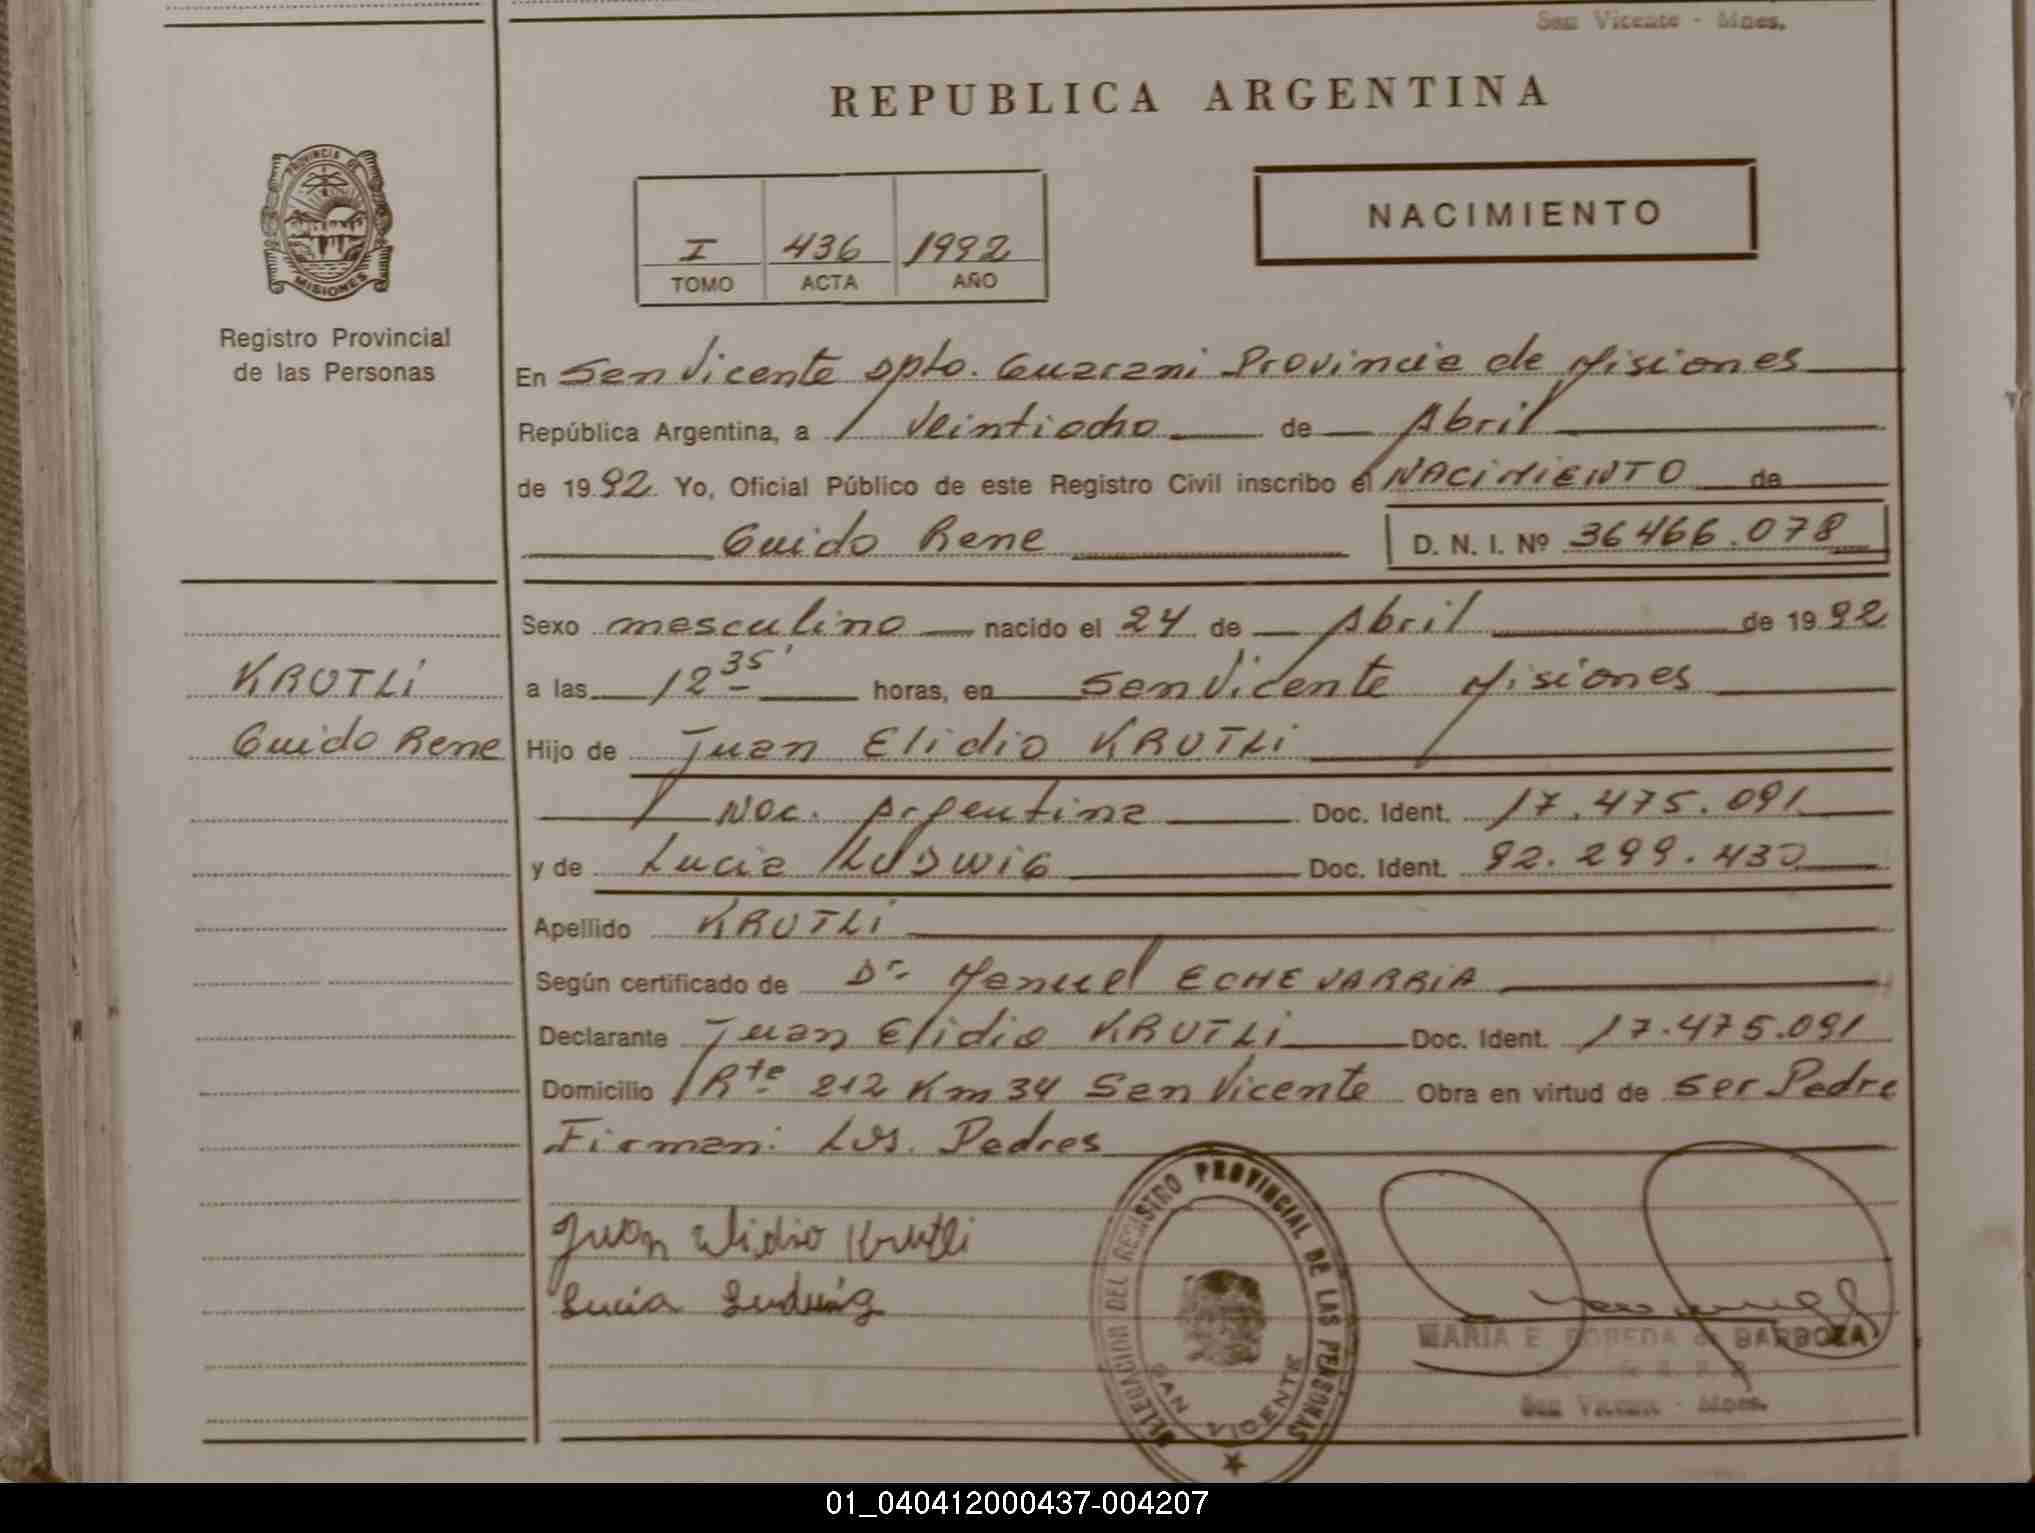 San Vicente - Mnes.
REPUBLICA ARGENTINA
PROVINCIA DE
MISIONES
Registro Provincial
de las Personas
I 436 1992
TOMO ACTA AÑO
NACIMIENTO
En San Vicente Dpto. Guarani Provincia de Misiones
República Argentina, a Veintiocho de Abril
de 1992. Yo, Oficial Público de este Registro Civil inscribo el NACIMIENTO de
Guido Rene D. N. I. Nº 36466.078
Sexo masculino nacido el 24 de Abril de 1992
KRUTLi
a las 12 35' horas, en San Vicente Misiones
Guido Rene
Hijo de Juan Elidio KRUTLi
Nac. Argentina Doc. Ident. 17.475.091
y de Lucia LUDWIG Doc. Ident. 92.299.430
Apellido KRUTLi
Según certificado de Dr. Manuel ECHEVARRIA
Declarante Juan Elidio KRUTLi Doc. Ident. 17.475.091
Domicilio Rte 212 Km 34 San Vicente Obra en virtud de Ser Padre
Firman: Los. Padres
Juan Elidio Krutli
Lucia Ludwig
DELEGACION DEL REGISTRO PROVINCIAL DE LAS PERSONAS
SAN VICENTE
MARIA E. de BARBOZA
San Vicente - Mnes.
01_040412000437-004207